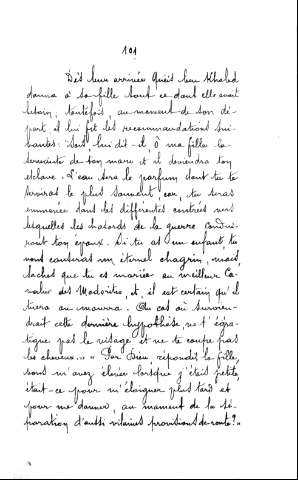 101
Dès leur arrivée Queis ben Khaled
donna à sa fille tout ce dont elle avait
besoin; toutefois, au moment de son dé-
part il lui fit les recommandations sui-
vantes: "Sois, lui dit-il, ô ma fille la
servante de ton mari et il deviendra ton
esclave. L'eau sera le parfum dont tu te
serviras le plus souvent, car, tu seras
emmenée dans les différentes contrées vers
lesquelles les hasards de la guerre condui-
ront ton époux. Si tu as un enfant tu
nous causeras un éternel chagrin, mais,
saches que tu es mariée au meilleur Ca-
valier des et, il est certain qu'il
tuera ou mourra. Au cas où survien-
drait cette dernière hypothèse ne t'égra-
tigne pas le visage et ne te coupe pas
les cheveux." « Par Dieu, répondit la fille,
vous m'avez élevée lorsque j'étais petite,
était-ce pour m'éloigner plus tard et
pour me donner, au moment de la sé-
paration d'aussi vilaines provisions de route? »